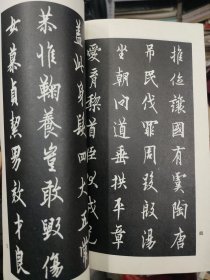 推位讓國有虞陶唐
吊民伐罪周發殷湯
坐朝問道垂拱平章
愛育黎首臣伏戎
蓋此身髮四大五常
恭惟鞠養豈敢毀傷
女慕貞絜男效才良